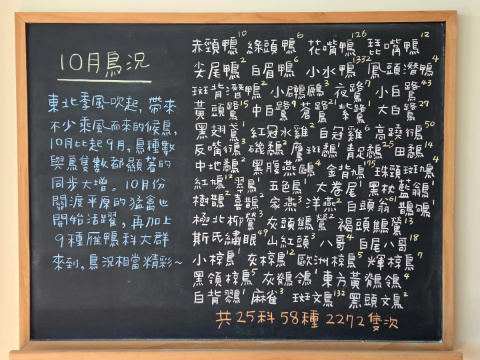 10月鳥況
東北季風吹起,帶來
不少乘風而來的候鳥,
10月比起9月,鳥種數
與鳥隻數都顯著的
同步大增。10月份
關渡平原的猛禽也
開始活躍,再加上
9種雁鴨科大群
來到,鳥況相當精彩~
赤頸鴨10 綠頭鴨6 花嘴鴨126 琵嘴鴨12
尖尾鴨2 白眉鴨6 小水鴨1332 鳳頭潛鴨4
斑背潛鴨2 小鸊鷉3 夜鷺7 小白鷺43
黃頭鷺15 中白鷺9 蒼鷺21 紫鷺1 大白鷺27
黑翅鳶1 紅冠水雞2 白冠雞6 高蹺行50
反嘴行3 鷹斑鷸1 青足鷸25 田鷸14
中地鷸2 黑腹燕鷗4 金背鳩175 珠頸斑鳩4
紅鳩12 翠鳥1 五色鳥1 大卷尾1 黑枕藍鶲1
樹鵲3 喜鵲1 家燕3 洋燕2 白頭翁61 鵲鴝
極北柳鶯1 灰頭鷦鶯2 褐頭鷦鶯13
斯氏繡眼49 山紅頭3 八哥4 白尾八哥18
小椋鳥1 灰椋鳥12 歐洲椋鳥5 輝椋鳥7
黑領椋鳥5 灰鶺鴒1 東方黃鶺鴒4
白背鶺鴒1 麻雀3 斑文鳥132 黑頭文鳥2
共25科58種2272隻次